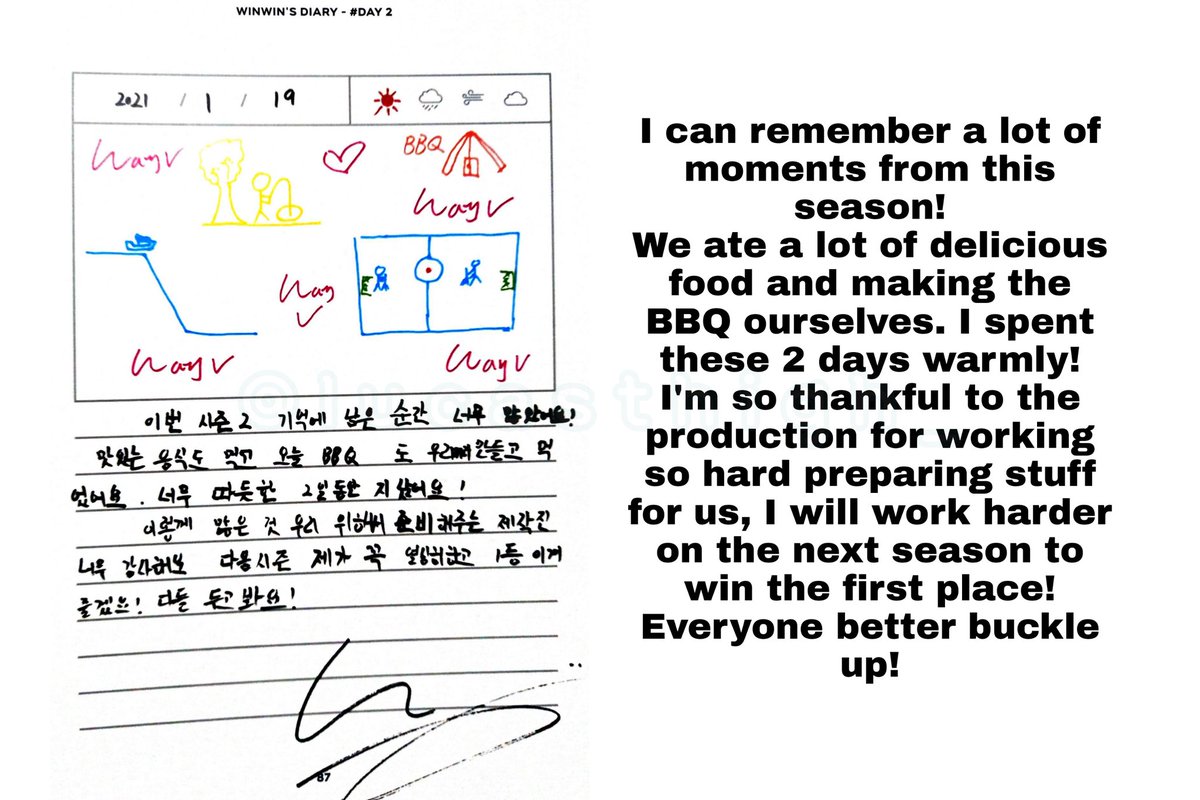 WINWIN'S DIARY - #DAY 2
2021 / 1 / 19
WayV
BBQ
WayV
Way
V
WayV
WayV
이번 시즌2 기억에 남은 순간 너무 많았어요!
맛있는 음식도 먹고 오늘 BBQ 도 우리 만들고 먹
었어요. 너무 따뜻한 2일동안 지냈어요!
이렇게 많은 것 우리 위해서 준비해주는 제작진
너무 감사해요 다음시즌 제가 꼭 열심히하고 1등 이게
다들 두고봐요!
87
I can remember a lot of
moments from this
season!
We ate a lot of delicious
food and making the
BBQ ourselves. I spent
these 2 days warmly!
I'm so thankful to the
production for working
so hard preparing stuff
for us, I will work harder
on the next season to
win the first place!
Everyone better buckle
up!